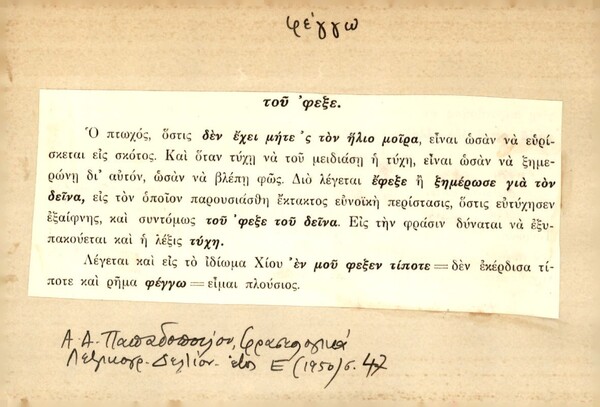 φέγγω
τοῦ ᾽φεξε.
Ὁ πτωχός, ὅστις δὲν ἔχει μήτε ᾽ς τὸν ἥλιο μοῖρα, εἶναι ὡσὰν νὰ εὑρί-
σκεται εἰς σκότος. Καὶ ὅταν τύχῃ νὰ τοῦ μειδιάσῃ ἡ τύχη, εἶναι ὡσὰν νὰ ξημε-
ρώνῃ δι᾽ αὐτόν, ὡσὰν νὰ βλέπῃ φῶς. Διὸ λέγεται ἔφεξε ἢ ξημέρωσε γιὰ τὸν
δεῖνα, εἰς τὸν ὁποῖον παρουσιάσθη ἔκτακτος εὐνοϊκὴ περίστασις, ὅστις εὐτύχησεν
ἐξαίφνης, καὶ συντόμως τοῦ ᾽φεξε τοῦ δεῖνα. Εἰς τὴν φράσιν δύναται νὰ ἐξυ-
πακούεται καὶ ἡ λέξις τύχη.
Λέγεται καὶ εἰς τὸ ἰδίωμα Χίου ᾽ἐν μοῦ φεξεν τίποτε = δὲν ἐκέρδισα τί-
ποτε καὶ ρῆμα φέγγω = εἶμαι πλούσιος.
Α. Α. Παπαδοπούλου, Φρασεολογικά
Λεξικογρ. Δελτίον. ἔτος Ε (1950) σ. 47